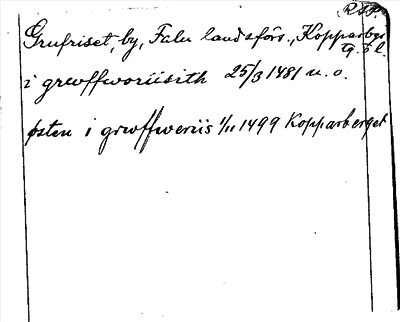 Grufriset, by, Falu landsförs., Kopparbergs
i grwffworiisith 25/3 1481 u. o.
østen i grwffweriis 1/11 1499 Kopparberget